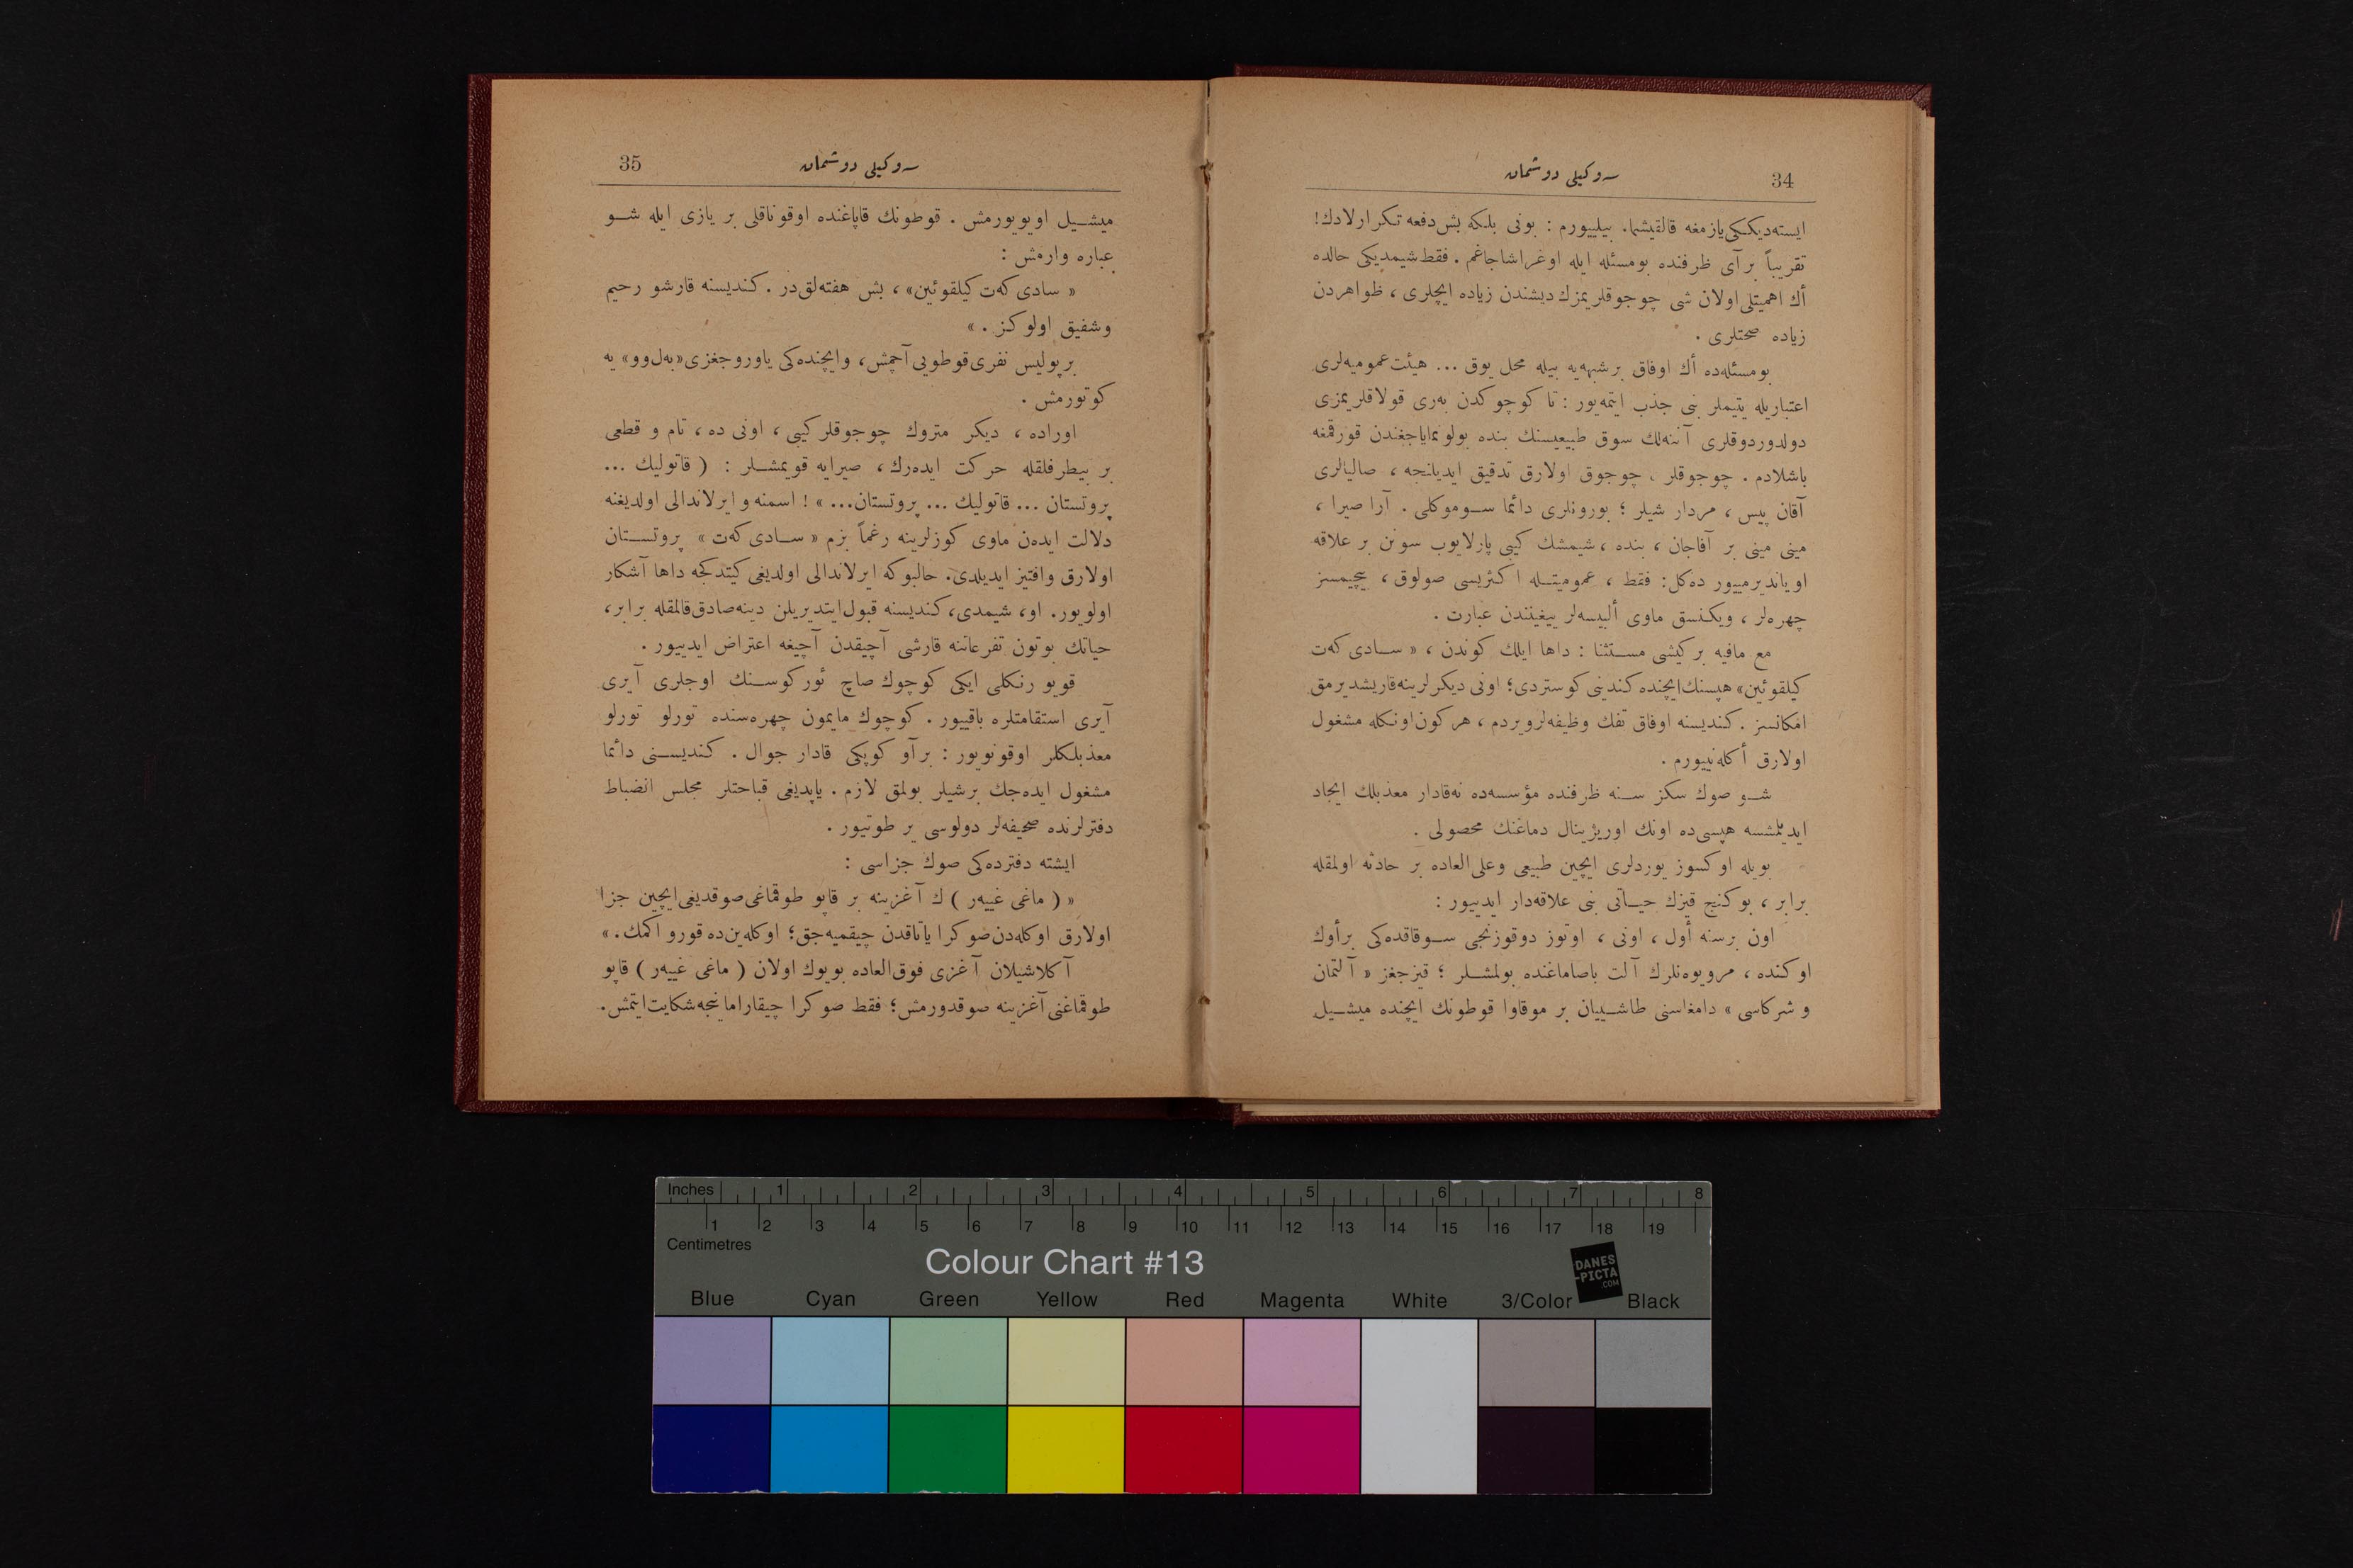 34
سەوكيلی دوشمان
ايسته‌ديككی يازمغه قالقيشما. بيلييورم : بونی بلكه بش دفعه تكرارلادك!
تقريباً بر آی ظرفنده بومسئله ايله اوغراشاجاغم . فقط شيمديكی حالده
أك اهميتلی اولان شی چوجوقلريمزك ديشندن زياده ايچلری ، ظواهردن
زياده صحتلری .
بومسئله‌ده أك اوفاق برشبهه‌يه بيله محل يوق ... هيئت عموميه‌لری
اعتباريله يتيملر بنی جذب ايتمه‌يور : تا كوچوكدن به‌ری قولاقلريمزی
دولدوردوقلری آننه‌لك سوق طبيعيسنك بنده بولونماياجغندن قورقمغه
باشلادم . چوجوقلر ، چوجوق اولارق تدقيق ايديلنجه ، صاليالری
آقان پيس ، مردار شيلر ؛ بورونلری دائما سوموكلی . آرا صيرا ،
مينی مينی بر آفاجان ، بنده ، شيمشك كيبی پارلايوب سونن بر علاقه
اوياندیرمییور ده‌كل : فقط ، عموميتله اكثريسی صولوق ، بيچيمسز
چهره‌لر ، ويكنسق ماوی ألبيسه‌لر ييغيننندن عبارت .
مع مافيه بر كيشی مستثنا : داها ايلك كوندن ، « سادی كه‌ت
كيلقوئين » هپسنك ايچنده كندينی كوستردی؛ اونی ديكرلرينه قاريشديرمق
امكانسز . كنديسنه اوفاق تفك وظيفه‌لر ويردم ، هر كون اونكله مشغول
اولارق أكله‌نييورم .
شو صوك سكز سنه ظرفنده مؤسسه‌ده نه‌قادار معذبلك ايجاد
ايديلمشسه هپسی‌ده اونك اوريژينال دماغنك محصولی .
بويله اوكسوز يوردلری ايچين طبيعی وعلی العاده بر حادثه اولمقله
برابر ، بو كنج قيزك حياتی بنی علاقه‌دار ايدييور :
اون برسنه أول ، اونی ، اوتوز دوقوزنجی سوقاقده‌كی برأوك
اوكنده ، مرويوه‌نلرك آلت باصاماغنده بولمشلر ؛ قيزجغز « آلتمان
و شركاسی » دامغاسنی طاشييان بر موقاوا قوطونك ايچنده ميشيل
35
سەوكيلی دوشمان
ميشيل اويويورمش . قوطونك قاپاغنده اوقوناقلی بر يازی ايله شو
عباره وارمش :
« سادی كه‌ت كيلقوئين» ، بش هفته‌لق‌در . كنديسنه قارشو رحيم
وشفيق اولوكز . »
برپوليس نفری قوطويی آچمش، وايچنده‌كی ياوروجغزی «به‌ل‌وو» يه
كوتورمش .
اوراده ، ديكر متروك چوجوقلر كيبی ، اونی ده ، تام و قطعی
بر بيطرفلقله حركت ايده‌رك، صيرايه قويمشلر : ( قاتوليك ...
پروتستان ... قاتوليك ... پروتستان... » ! اسمنه و ايرلاندالی اولديغنه
دلالت ايده‌ن ماوی كوزلرينه رغماً بزم « سادی كه‌ت » پروتستان
اولارق وافتيز ايديلدی. حالبوكه ايرلاندالی اولديغی كيتدكجه داها آشكار
اولويور. او، شيمدی، كنديسنه قبول ايتديريلن دينه صادق قالمقله برابر،
حياتك بوتون تفرعاتنه قارشی آچيقدن آچيغه اعتراض ايدييور .
قويو رنكلی ايكی كوچوك صاچ ئوركوسنك اوجلری آيری
آيری استقامتلره باقييور . كوچوك مايمون چهره‌سنده تورلو تورلو
معذبلكلر اوقونويور : بر آو كوپكی قادار جوال . كنديسنی دائما
مشغول ايده‌جك برشيلر بولمق لازم . ياپديغی قباحتلر مجلس انضباط
دفترلرنده صحيفه‌لر دولوسی ير طوتيور .
ايشته دفترده‌كی صوك جزاسی :
« ( ماغی غييه‌ر ) ك آغزينه بر قاپو طوقماغی صوقديغی ايچين جزا
اولارق اوكله‌دن صوكرا ياتاقدن چيقميه‌جق؛ اوكله‌ين‌ده قورو اكمك . »
آكلاشيلان آغزی فوق‌العاده بويوك اولان ( ماغی غييه‌ر ) قاپو
طوقماغنی آغزينه صوقدورمش؛ فقط صوكرا چيقارامانجه شكايت ايتمش.
Inches 1 2 3 4 5 6 7 8
1 2 3 4 5 6 7 8 9 10 11 12 13 14 15 16 17 18 19
Centimetres
Colour Chart #13
DANES
-PICTA
.COM
Blue Cyan Green Yellow Red Magenta White 3/Color Black